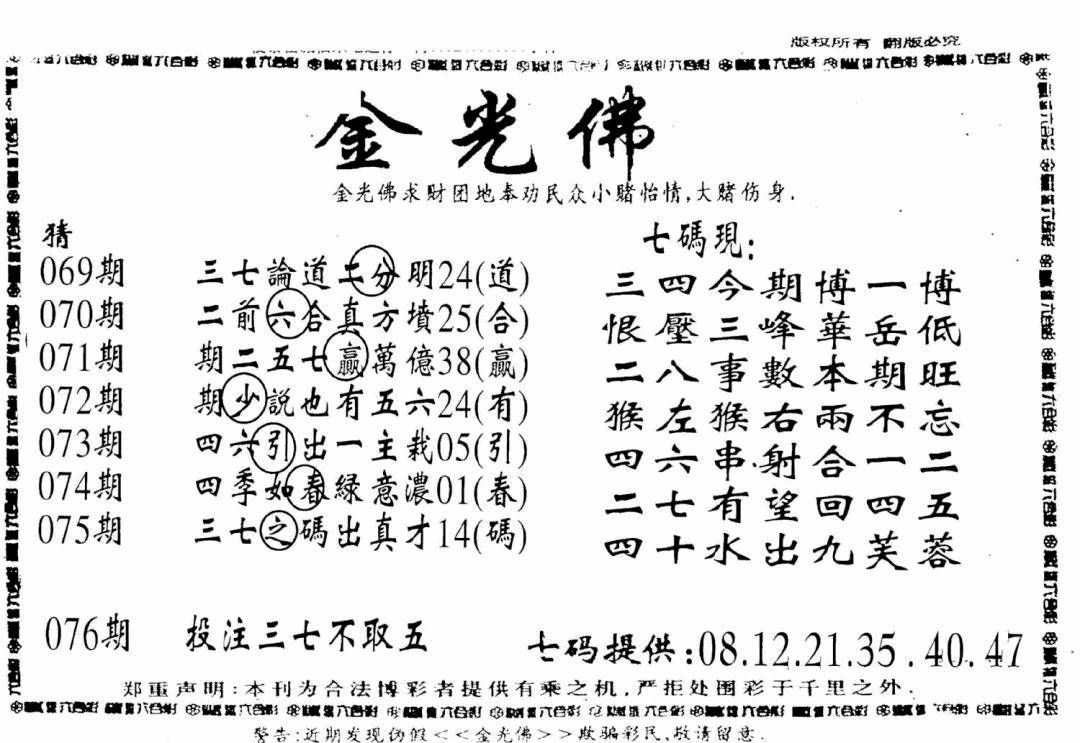 版权所有 翻版必究
金光佛
金光佛求财团地奉劝民众小赌怡情,大赌伤身.
猜
069期 三七論道二分明24(道)
070期 二前六合真方墳25(合)
071期 期二五七贏萬億38(贏)
072期 期少説也有五六24(有)
073期 四六引出一主栽05(引)
074期 四季如春緑意濃01(春)
075期 三七之碼出真才14(碼)
076期 投注三七不取五
七碼現:
三四今期博一博
恨壓三峰華岳低
二八事數本期旺
猴左猴右兩不忘
四六串射合一二
二七有望回四五
四十水出九芙蓉
七码提供:08.12.21.35.40.47
郑重声明:本刊为合法博彩者提供有乘之机,严拒处围彩于千里之外.
警告:近期发现伪假<<金光佛>>欺骗彩民,敬请留意.